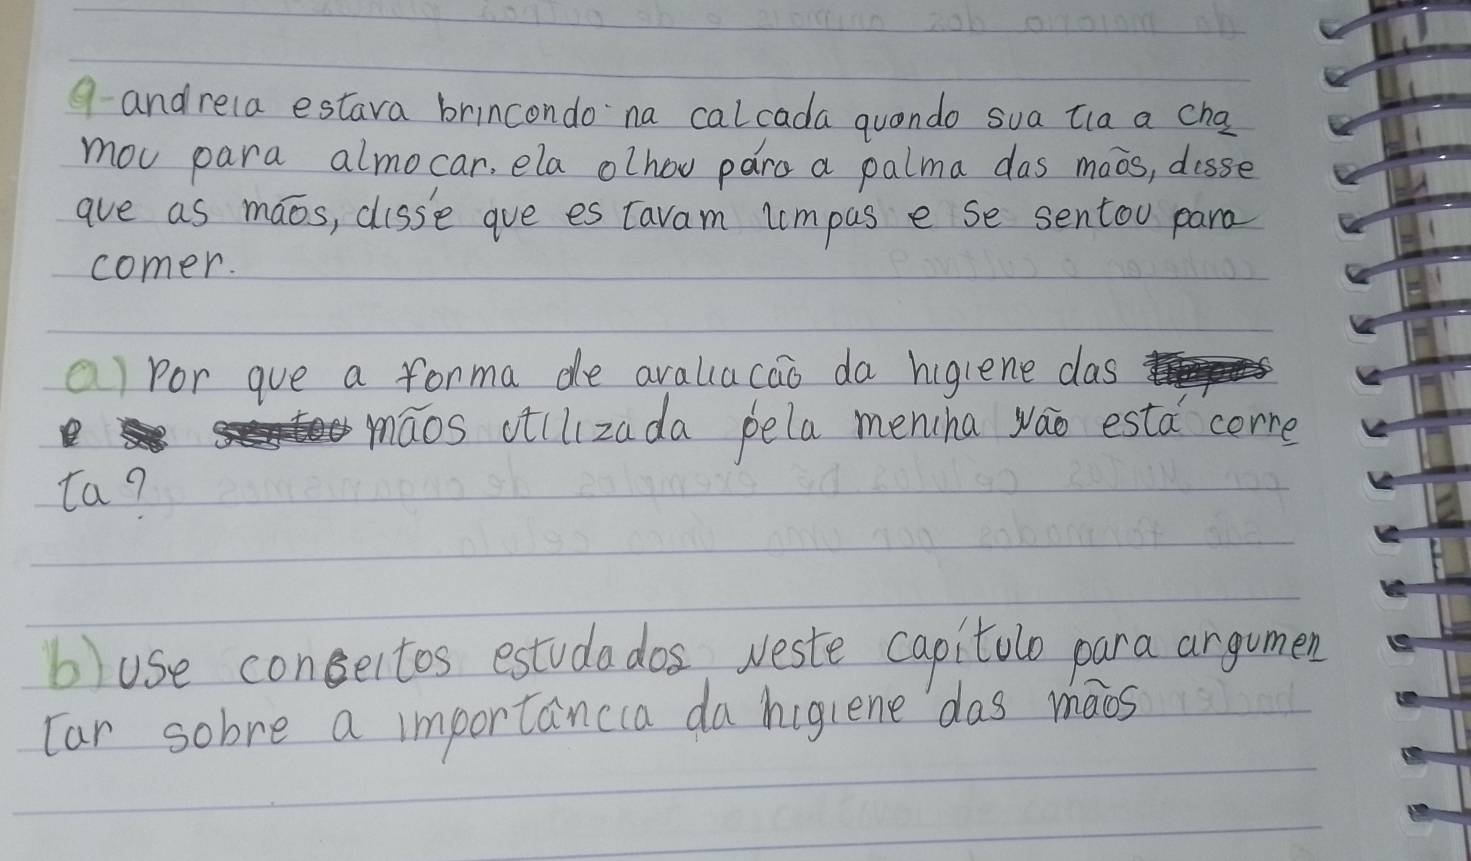 9-andreia estava brincondo na calcada quondo sua tia a cha
mou para almocar. ela olhou páro a palma das maõs, disse
que as maõs, disse que es tavam limpas e se sentou para
comer.
a) Por que a forma de avaliacaõ da higiene das
e mãos utilizada pela menina não está corre
ta?
b) use conseitos estudados neste capítulo para argumen
tar sobre a importância da higiene das mãos